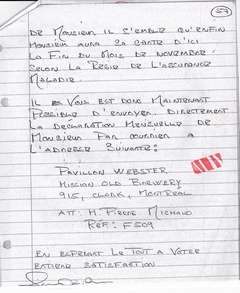 57
DE MONSIEUR IL S'EMBLE QU'ENFIN
MONSIEUR AURA SA CARTE D'ICI
LA FIN DU MOIS DE NOVEMBRE
SELON LA REGIE DE L'ASSURANCE
MALADIE.
IL EN VOUS EST DONC MAINTENANT
POSSIBLE D'ENVOYER DIRECTEMENT
LA DECLARATION MENSUELLE DE
MONSIEUR PAR COURRIER A
L'ADRESSE SUIVANTE:
PAVILLON WEBSTER
MISSION OLD BREWERY
915, CLARK, MONTREAL
ATT: M. PIERRE MICHAUD
REF: F509
EN ESPERANT LE TOUT A VOTRE
ENTIERE SATISFACTION